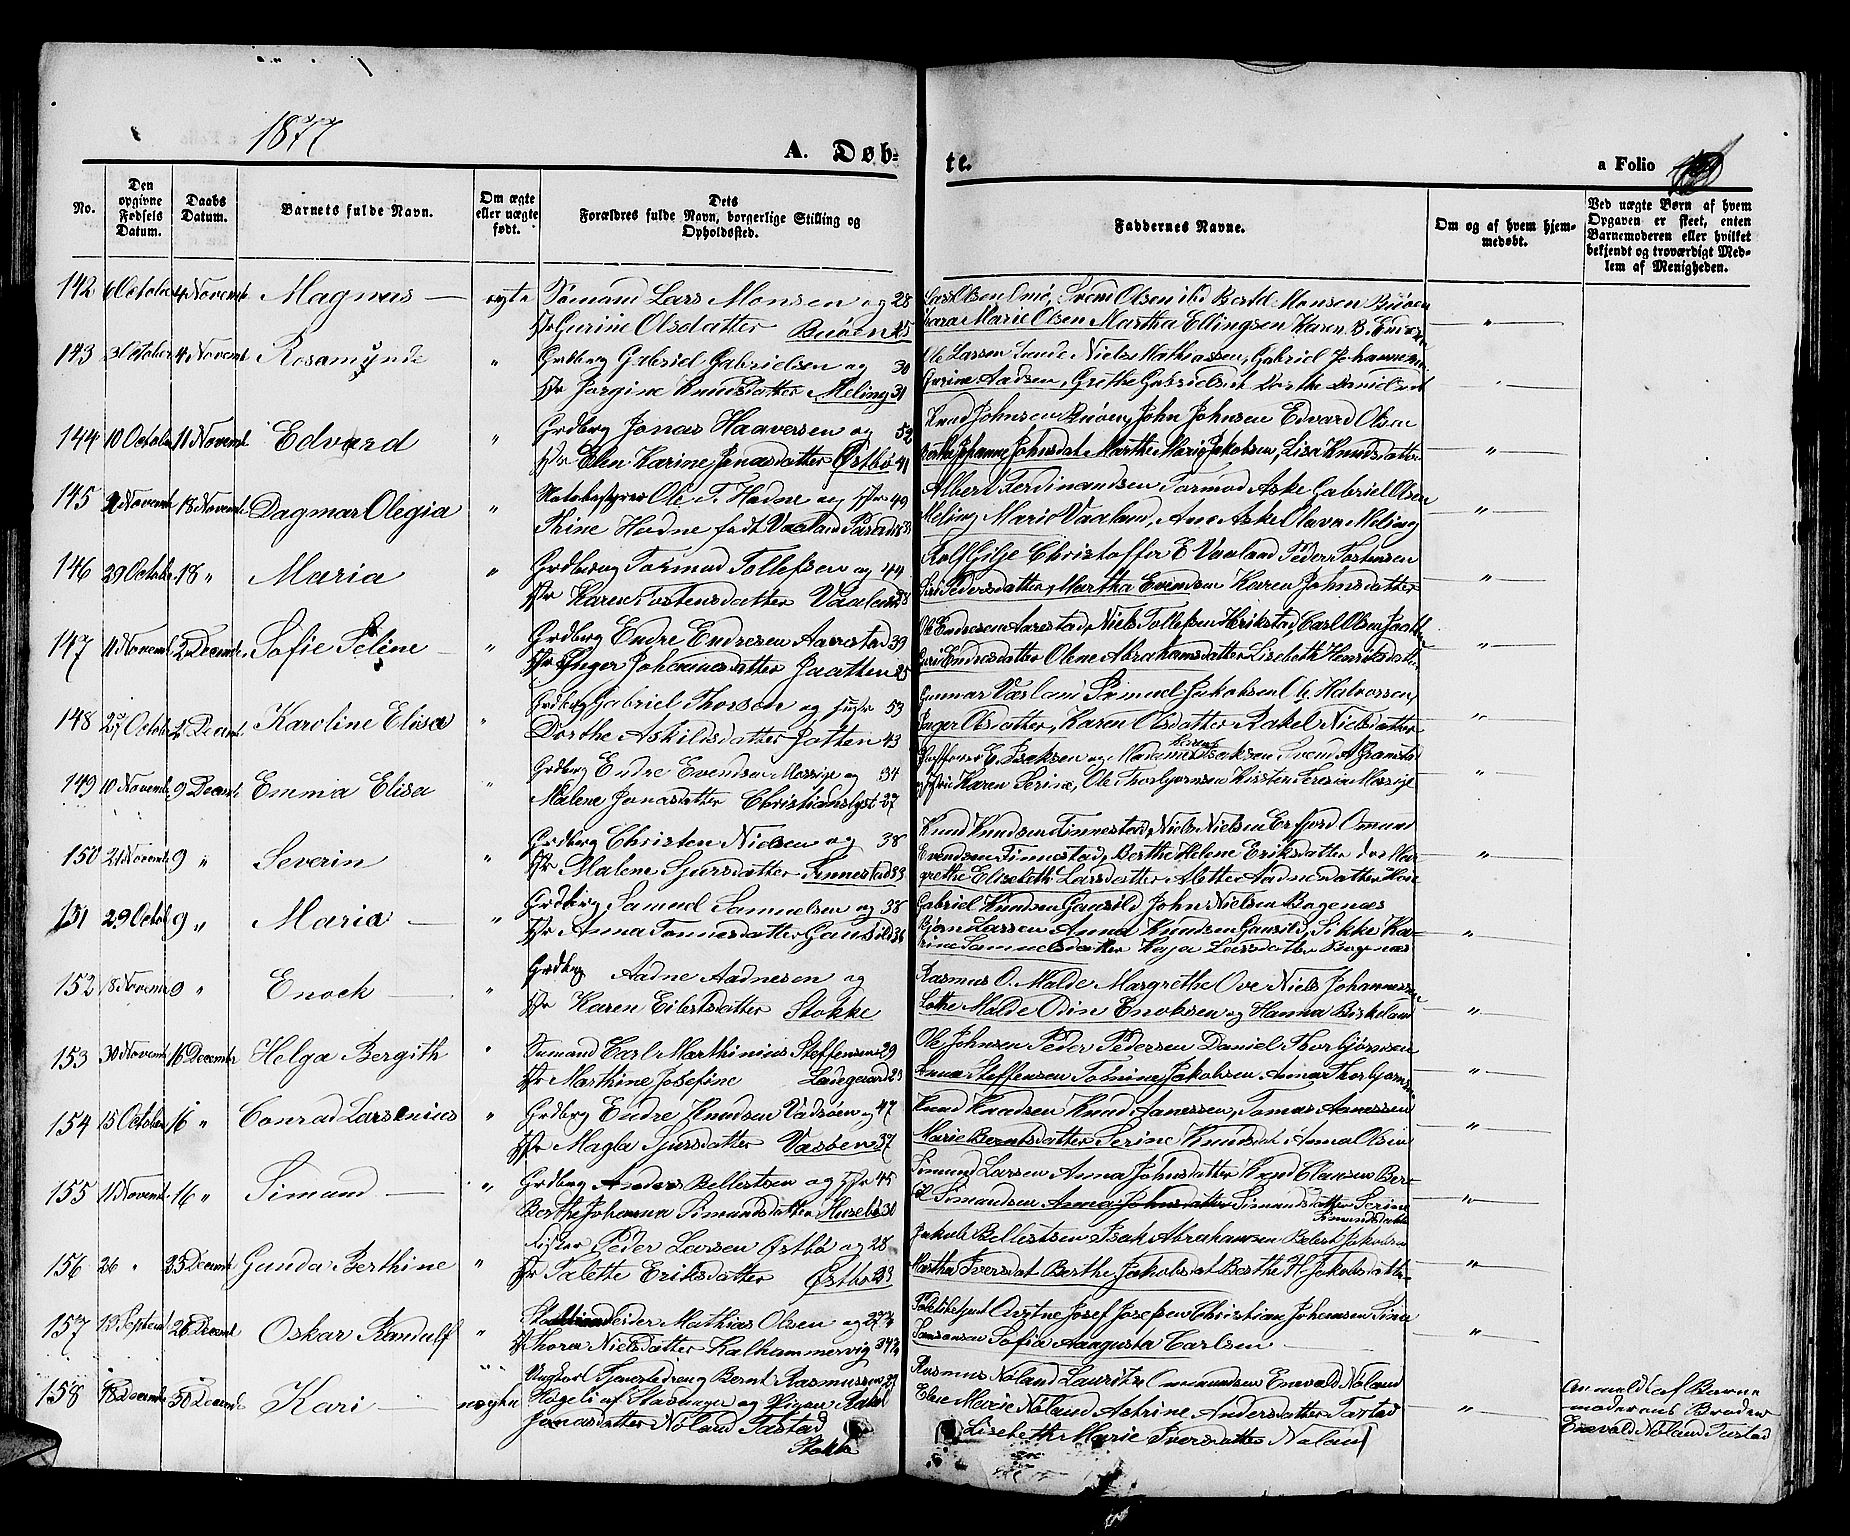 1877
A. Døb-
te.
a Folio
No.
Den opgivne Fødsels Datum.
Daabs Datum.
Barnets fulde Navn.
Om ægte eller uægte født.
Dets Forældres fulde Navn, borgerlige Stilling og Opholdssted.
Faddernes Navne.
Om og af hvem hjemmedøbt.
Ved uægte Børn af hvem Opgaven er skeet, enten Barnemoderen eller hvilket bekjendt og troværdigt Medlem af Menigheden.
142 6 October 4 Novemb. Magnus ægte Sømand Lars Monsen og 28
Gurine Olsdatter Buøen 25
Svend Olsen Bertel Monsen Buøen
Marie Olsen Martha Ellingsen Karen B.
143 3 October 4 Novemb. Rosamunde " Grdbrg Gabriel Gabrielsen og 30
Jorgine Knudsdatter Meling 31
Ole Larsen Sunde Niels Mathiassen, Gabriel Johannesen
Gurine Aadsen, Grethe Gabrielsd. Dorthe Danielsd.
144 10 October 11 Novemb. Edvard " Grdbrg Jonas Haaversen og 52
Elen Karine Jonasdatter Østbø 41
Knud Johnsen Buøen, John Johnsen Edvard Olsen
Berthe Johanne Johnsdat. Marthe Marie Jakobsen, Lisa Knudsdatter
145 Novemb. 18 Novemb. Dagmar Olegia " Ole T. Hodne og Hstr 49
Thine Hodne født Vaaland
Albert Ferdinandsen Tormod Aske Gabriel Olsen
Meling Marie Vaaland, Ane Aske Olava Meling
146 29 October 18 " Maria " Grdbrg Tormod Tollefsen og 44
Karen Tostensdatter Vaaland 38
Rolf Gilje Christoffer E Vaaland Peder Tostensen
Siri Pedersdatter, Martha Evendsen Karen Johnsdatter
147 11 Novemb. 2 Decemb. Sofie Seline " Grdbrg Endre Endresen Aarrestad 39
Inger Johannesdatter Jaatten 25
Ole Endresen Aarestad, Niels Tollefsen Henikstad, Carl Olsen Jaatten
Guri Endresdatter Olene Abrahamsdatter Lisebeth Henriksdatter
148 27 October 2 Decemb. Karoline Elisa " Grdbrg Gabriel Thorsen og Hustr 53
Dorthe Askildsdatter Jatten 43
Gunnar Vasland Samuel Jakobsen Ole Halvorsen,
Inger Olsdatter, Karen Olsdatter Rakel Nielsdatter
149 10 Novemb. 9 Decemb. Emma Elisa " Grdbrg Endre Evendsen Mossige og 34
Malene Jonasdatter Christianslyst 27
E. Isaksen og Madame Isaksen Svend A Gramstad
og Frü Karen Serine, Ole Thorbjørnsen Kirsten Seresia Mossige
150 21 Novemb. 9 " Severin " Grdbrg Christen Nielsen og 38
Malene Sjursdatter Tennestad 33
Knud Knudsen Tinnestad, Niels Nielsen Erfjord Omund
Evendsen Tinnestad, Berthe Helene Eriksdatter
grethe Elisebeth Larsdatter Alethe Aadnesdatter
151 29 Octob. 9 " Maria " Grdbrg Samuel Samuelsen og 38
Anna Tonnesdatter Gausild 36
Gabriel Knudsen Gausild John Nielsen Bogenæs
Bjørn Larsen Anna Knudsen Gausild, Sikke Ka-
rine Samuelsdatter Kaja Larsdatter Bogenæs
152 18 Novemb. 9 " Enock " Grdbrg Aadne Aadnesen og
Karen Eilertsdatter Stokke
Rasmus O. Malde Margrethe Ove Niels Johannessen
Lotte Malde Odin Enoksen og Hanna Birkeland
153 30 Novemb. 16 Decemb. Helga Bergith " Sømand Carl Marthinius Steffensen 29
Marthine Josefine Ladegaard 23
Ole Johnsen Peder Pedersen Daniel Thorbjørnsen
Anna Steffensen Tobine Jakobsen Anna Thorbjørnsen
154 15 October 16 " Conrad Larsenius " Grdbrg Endre Knudsen Vadsøen og 47
Magla Sjursdatter 37
Knud Knudsen Knud Aanessen, Tomas Aanessen
Marie Berntsdatter Serine Knudsdat. Anna Olsen
155 11 Novemb. 16 " Simund " Grdbrg Anders Bellestsen og Hstr 45
Berthe Johanna Simundsdatter Husebø 30
Simund Larsen Anna Johnsdatter Knud Clausen Ber-
Simundsen Anna Johnsdatter Simundsdatter Serine
Simundsdatter
156 26 " 25 Decemb. Gunda Berthine " Peder Larsen Østbø og 28
Talette Eriksdatter Østbø 23
Jakob Bellestsen Isak Abrahamsen Jakobsen
Martha Iversdat. Berthe Jakobsdat. Berthe H. Jakobsdatter
157 12 Septemb. 26 Decemb. Oskar Randulf " Mathias Olsen og 37
Thora Nielsdatter Kalhammervig 34
Josef Josefsen Christian Johannsen Sina
Sofia Augusta Carlsen
158 18 Decemb. 30 Decemb. Kari uægte Ungkarl Tjenestedreng Bernt Rasmussen
af Stavanger og Pigen Rakel
Jonasdatter Noland Tastad
Stokke
Rasmus Noland Lauritz Omundsen Enevald Noland
Elen Marie Noland Astrine Andersdatter Tastad
Lisebeth Marie Iversdatter Noland
Anmeldt af Barne
moderens Broder
Enevald Noland Tastad